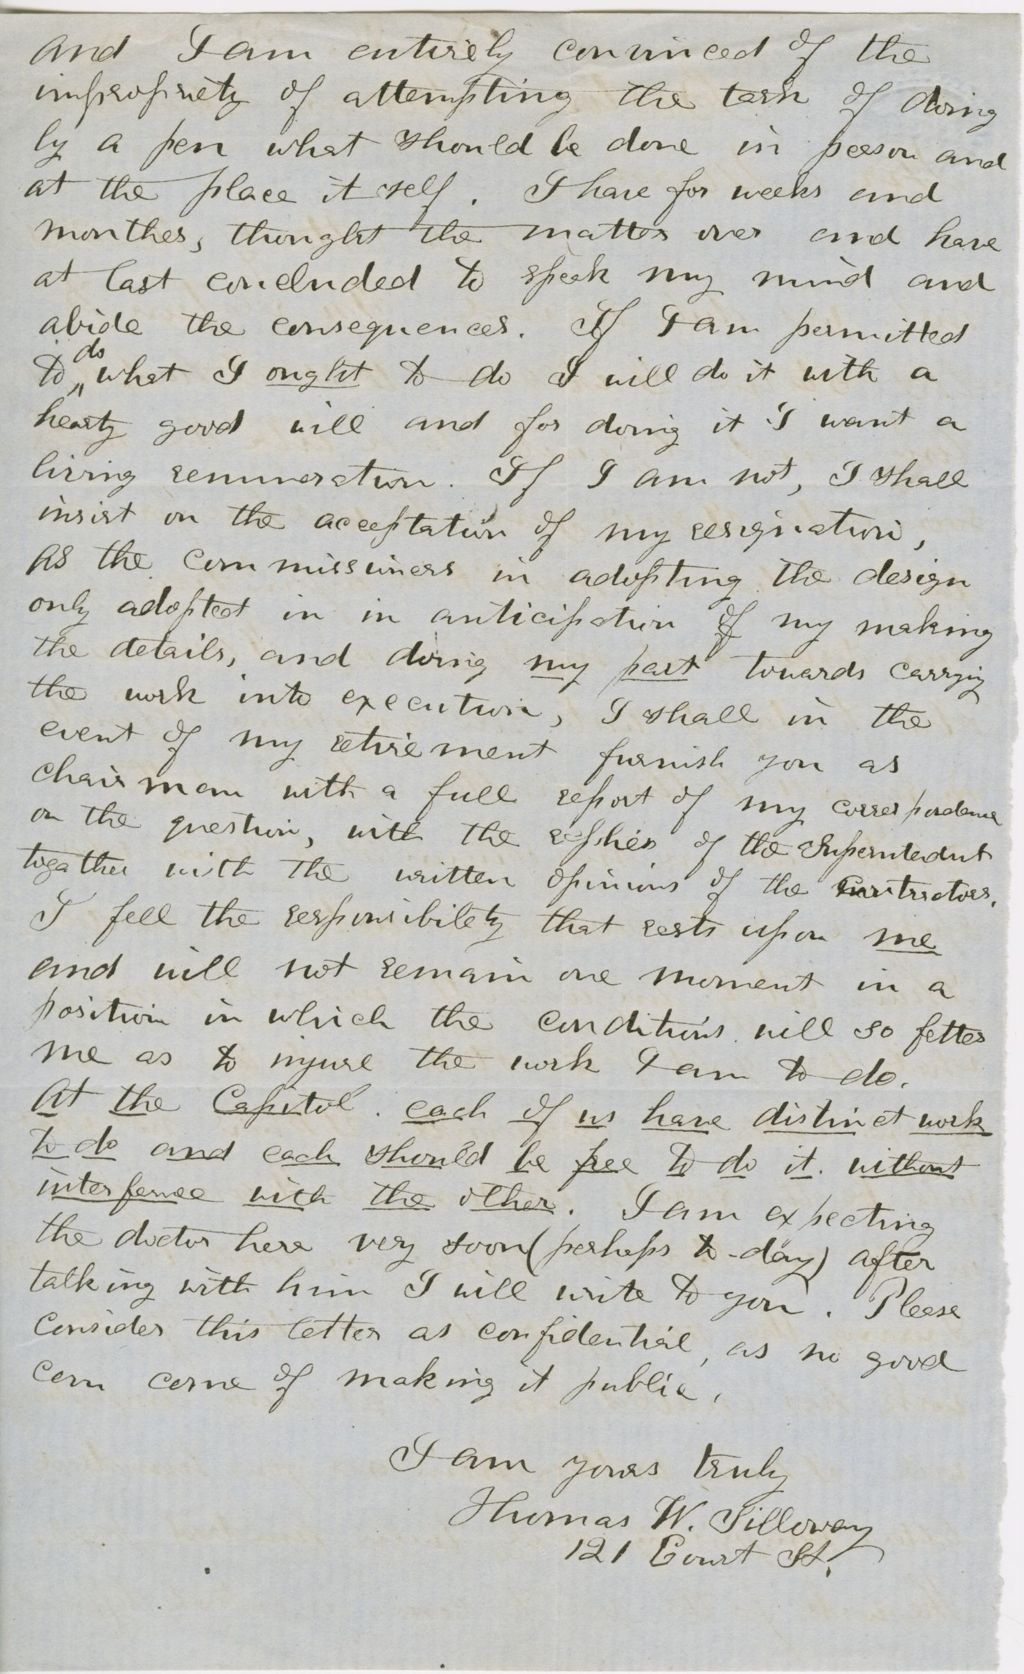 and I am entirely convinced of the
impropriety of attempting the task of doing
by a pen what should be done in person and
at the place it self. I have for weeks and
monthes, thought the matter over and have
at last concluded to speak my mind and
abide the consequences. If I am permitted
to do what I ought to do I will do it with a
hearty good will and for doing it I want a
living remuneration. If I am not, I shall
insist on the acceptation of my resignation,
as the commissiners in adopting the design
only adopted in in anticipation of my making
the details, and doing my part towards carrying
the work into execution, I shall in the
event of my retirement furnish you as
chairman with a full report of my correspondence
on the question, with the replies of the Superintendent
together with the written opinions of the Contractors.
I feel the responsibility that rests upon me
and will not remain one moment in a
position in which the conditions will so fetter
me as to injure the work I am to do.
At the Capitol. each of us have distinct work
to do and each should be free to do it. without
interfence with the other. I am expecting
the doctor here very soon (perhaps to-day) after
talking with him I will write to you. Please
consider this letter as confidential, as no good
can come of making it public.
I am yours truly
Thomas W. Silloway
121 Court St.